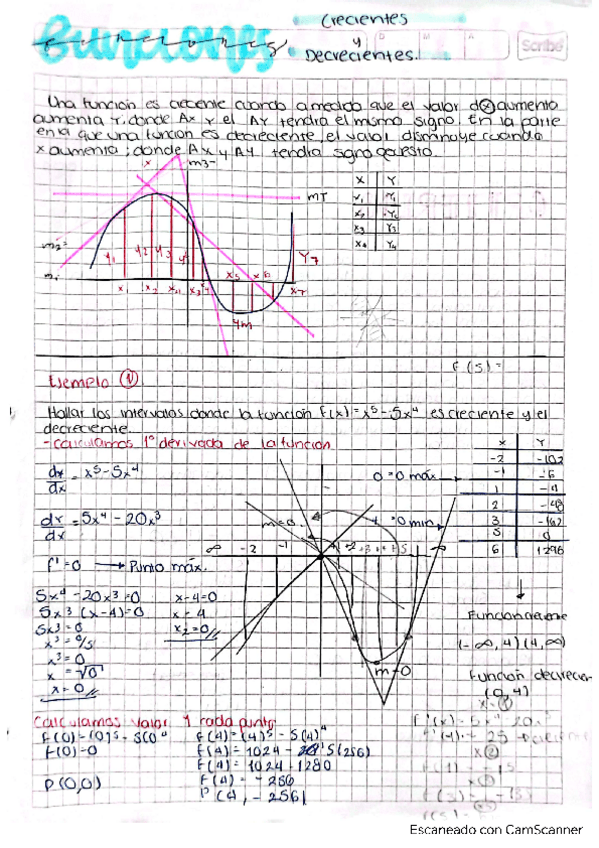 Funciones Crecientes
y
Decrecientes.
Scribe
Una función es creciente cuando a medida que el valor de x aumenta
aumenta Y, donde Ax y el AY tendrá el mismo signo. En la parte
en la que una función es decreciente, el valor disminuye cuando
x aumenta; donde Ax y AY tendrá signo opuesto.
m3
mT
m2
X Y
x1 Y1
x2 Y2
x3 Y3
x4 Y4
Y1 Y2 Y3
Y7
x1 x2 x3
x5 x6 x7
4m
F(5)=
Ejemplo 1
Hallar los intervalos donde la función f(x)=x⁵-5x⁴ es creciente y el
decreciente.
-calculamos 1° derivada de la función
dx/dx = x⁵-5x⁴
dy/dx = 5x⁴-20x³
f'=0 → Punto máx.
5x⁴-20x³=0
5x³(x-4)=0
5x³=0
x³=0/5
x³=0
x=√0
x=0//
x-4=0
x=4
x2=0//
0=0 máx
=0 min
m=0
∞ -2 -1
m=0
X Y
-2 -102
-1 -6
1 -4
2 -48
3 -162
5 0
6 1296
Función creciente
(-∞,4)(4,∞)
Función decrecien
(0,4)
Calculamos valor Y cada punto
F(0)=(0)5-5(0⁴
F(0)=0
P(0,0)
F(4)=(4)5-5(4)⁴
F(4)=1024-5(256)
F(4)=1024-1280
F(4)=-256
P(4,-256)
Escaneado con CamScanner